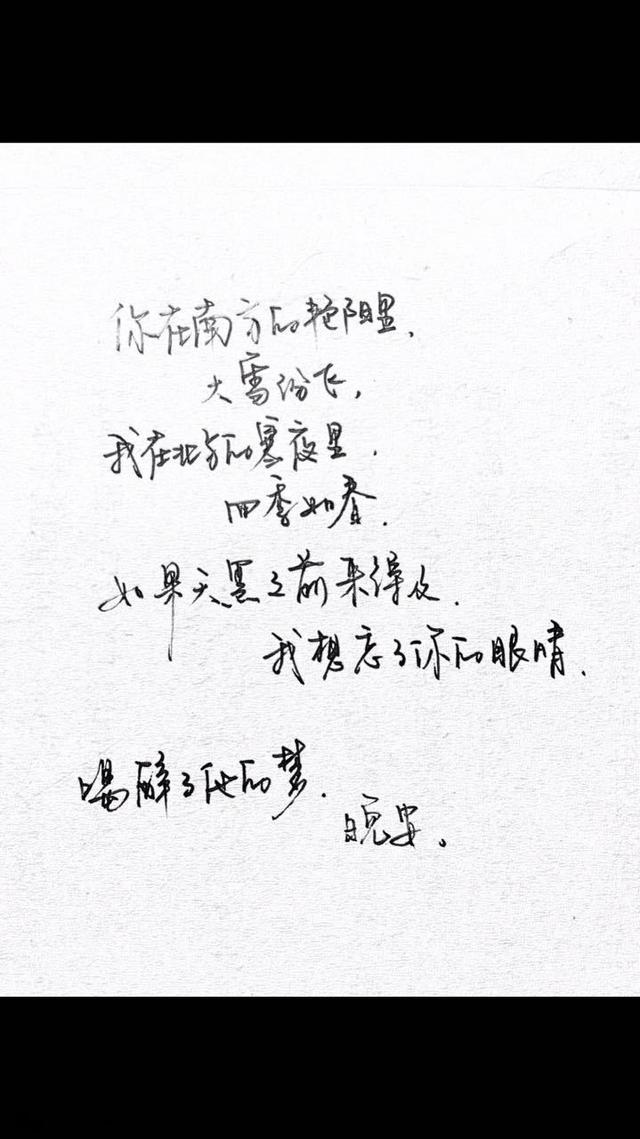 你在南方的艳阳里，
大雪纷飞，
我在北方的寒夜里，
四季如春，
如果天黑之前来得及，
我想忘了你的眼睛，
喝醉了他的梦，
晚安。